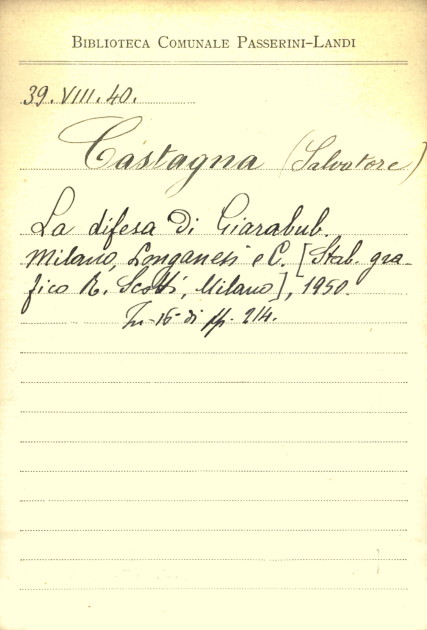 BIBLIOTECA COMUNALE PASSERINI-LANDI
39.VIII.40.
Castagna (Salvatore)
La difesa di Giarabub.
Milano, Longanesi e C. [Stab. gra-
fico R. Scotti, Milano], 1950.
In-16° di pp. 214.